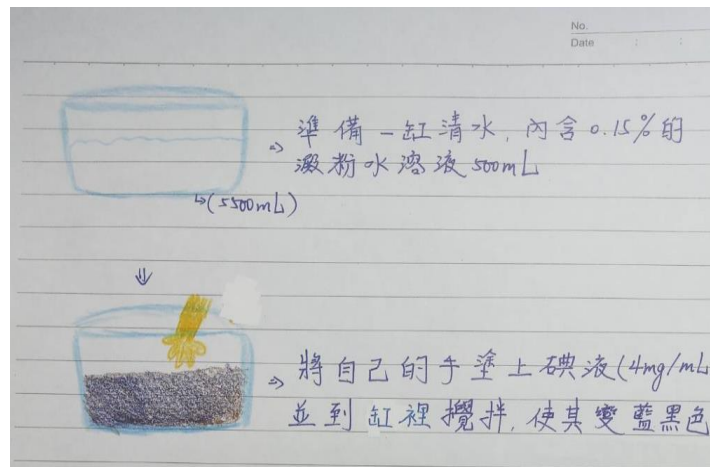 No.
Date : :
⇒ 準備一缸清水,內含0.15%的
澱粉水溶液500mL
↳(5500mL)
⇓
⇒ 將自己的手塗上碘液(4mg/mL
並到缸裡攪拌,使其變藍黑色